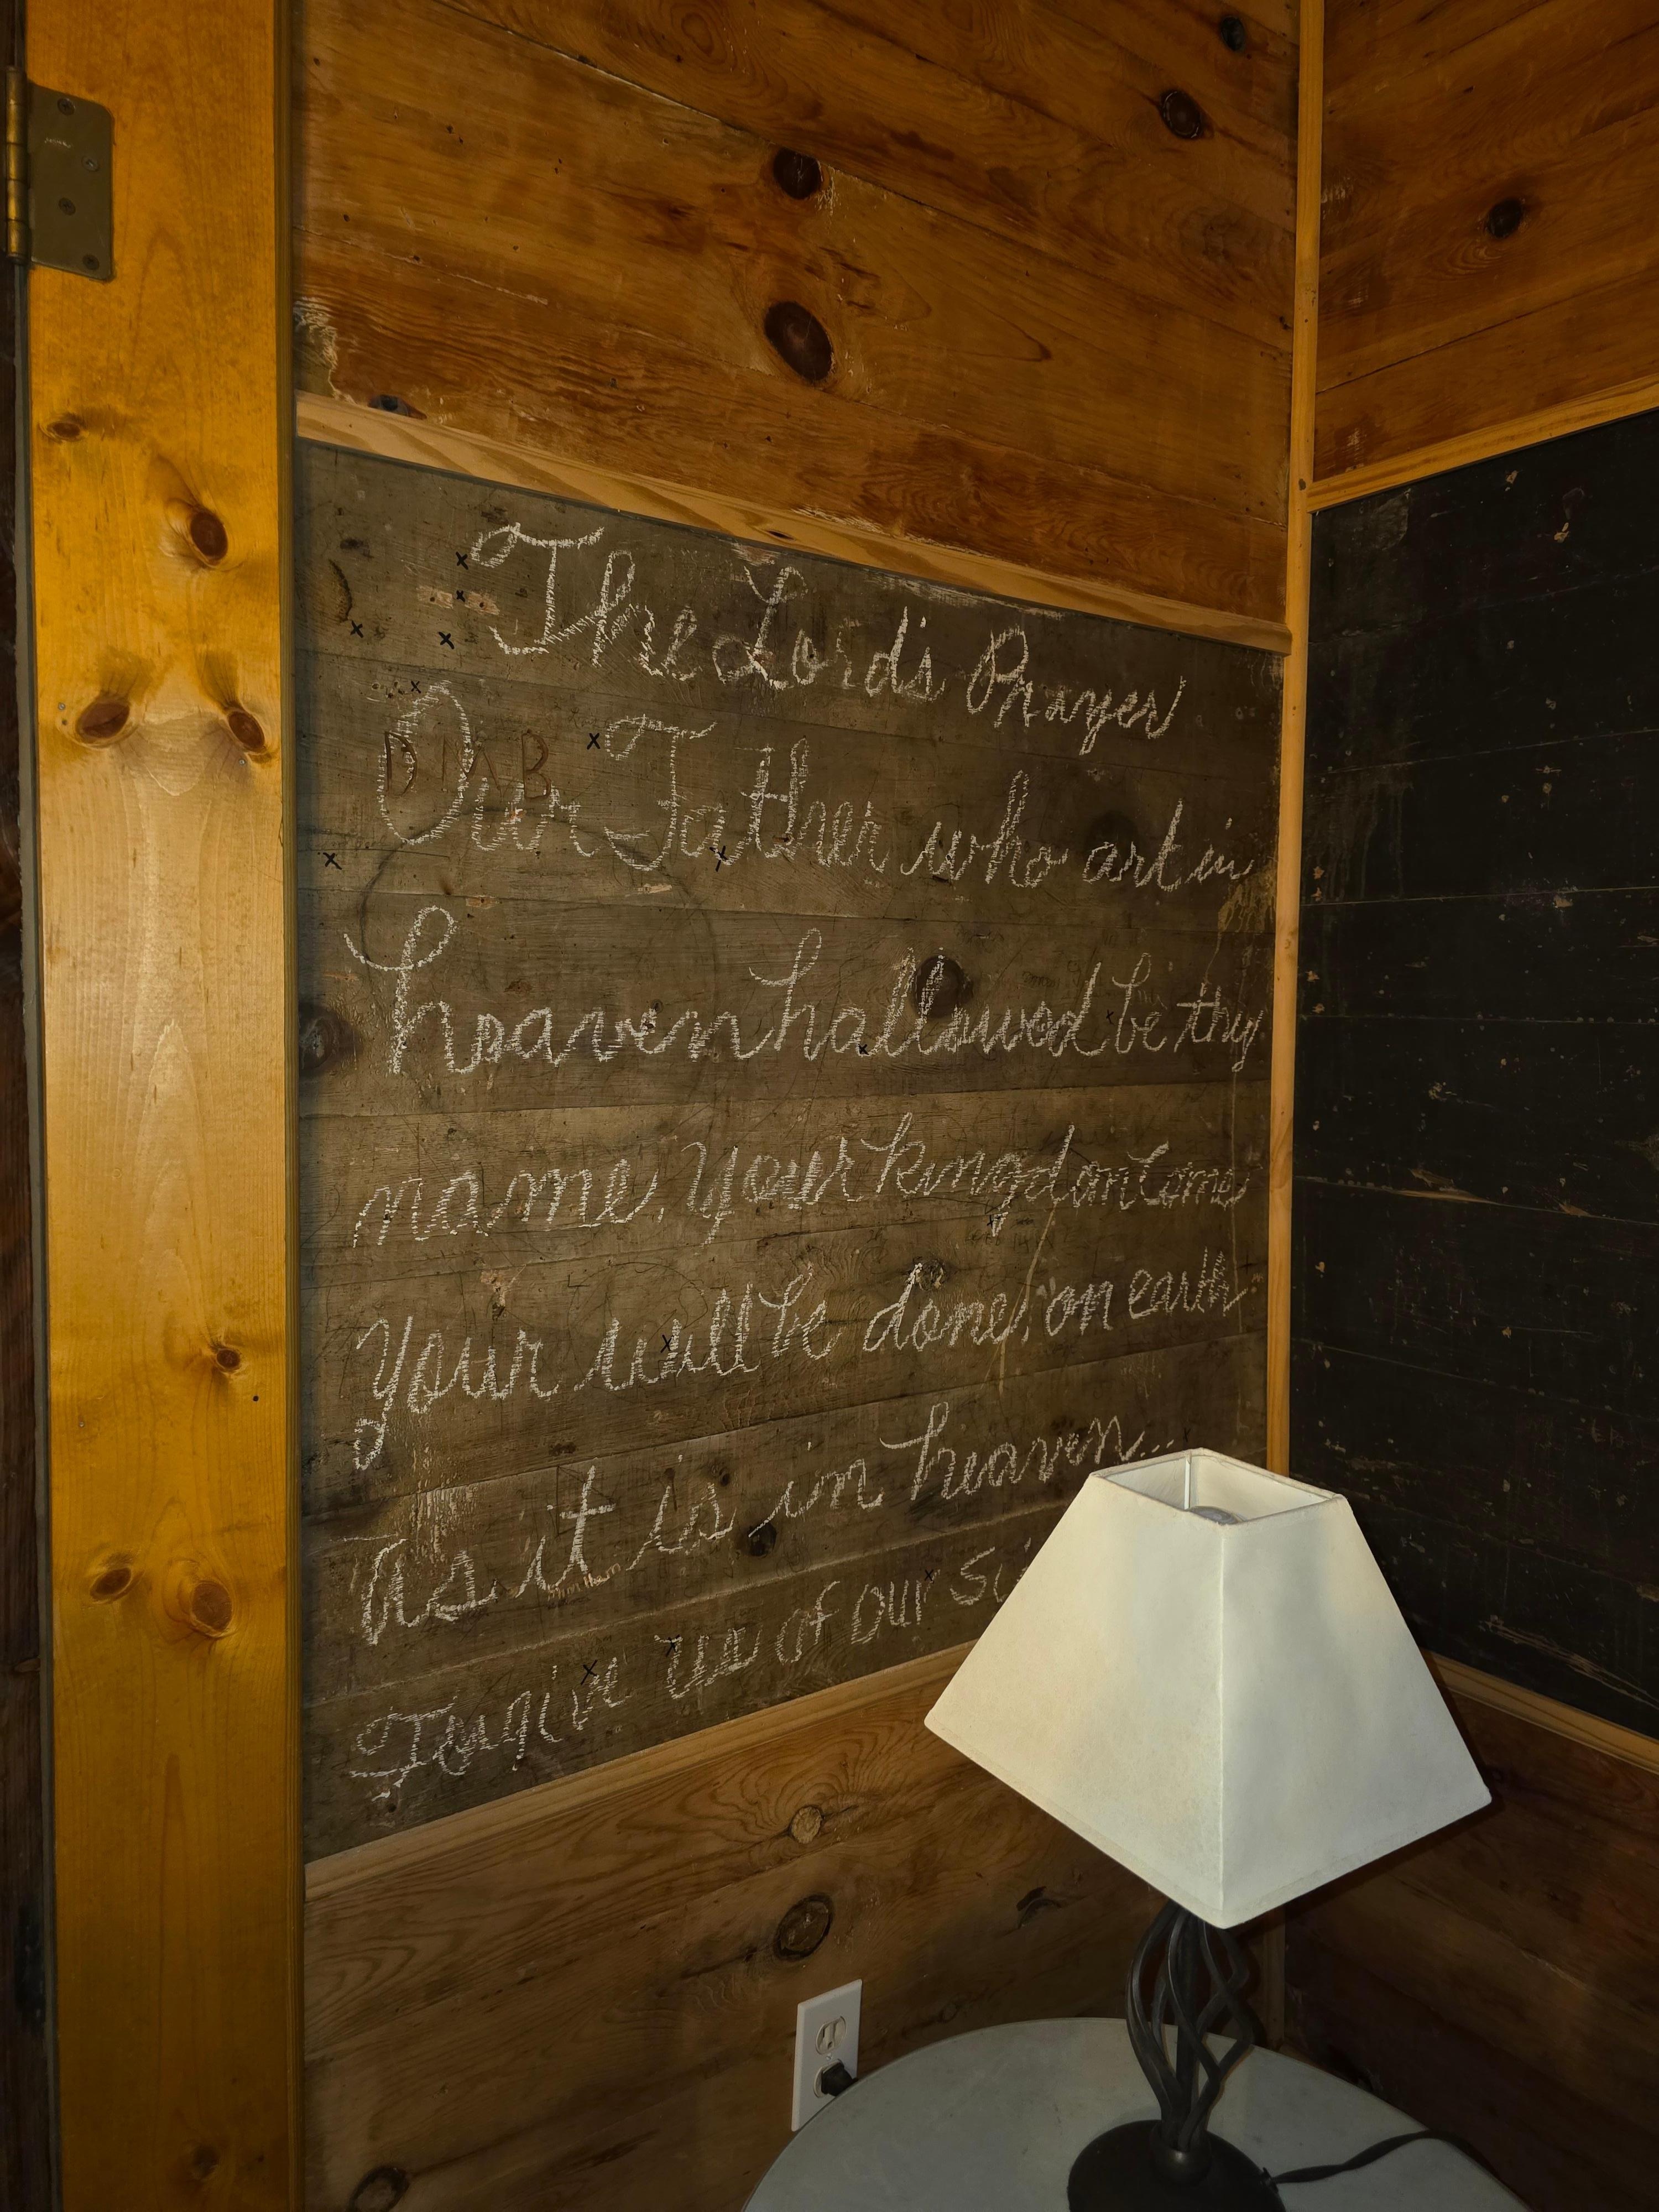 The Lord's Prayer
DMB
Our Father who art in
heaven hallowed be thy
name. Your kingdom come
Your will be done, on earth
As it is in heaven...
Forgive us of our